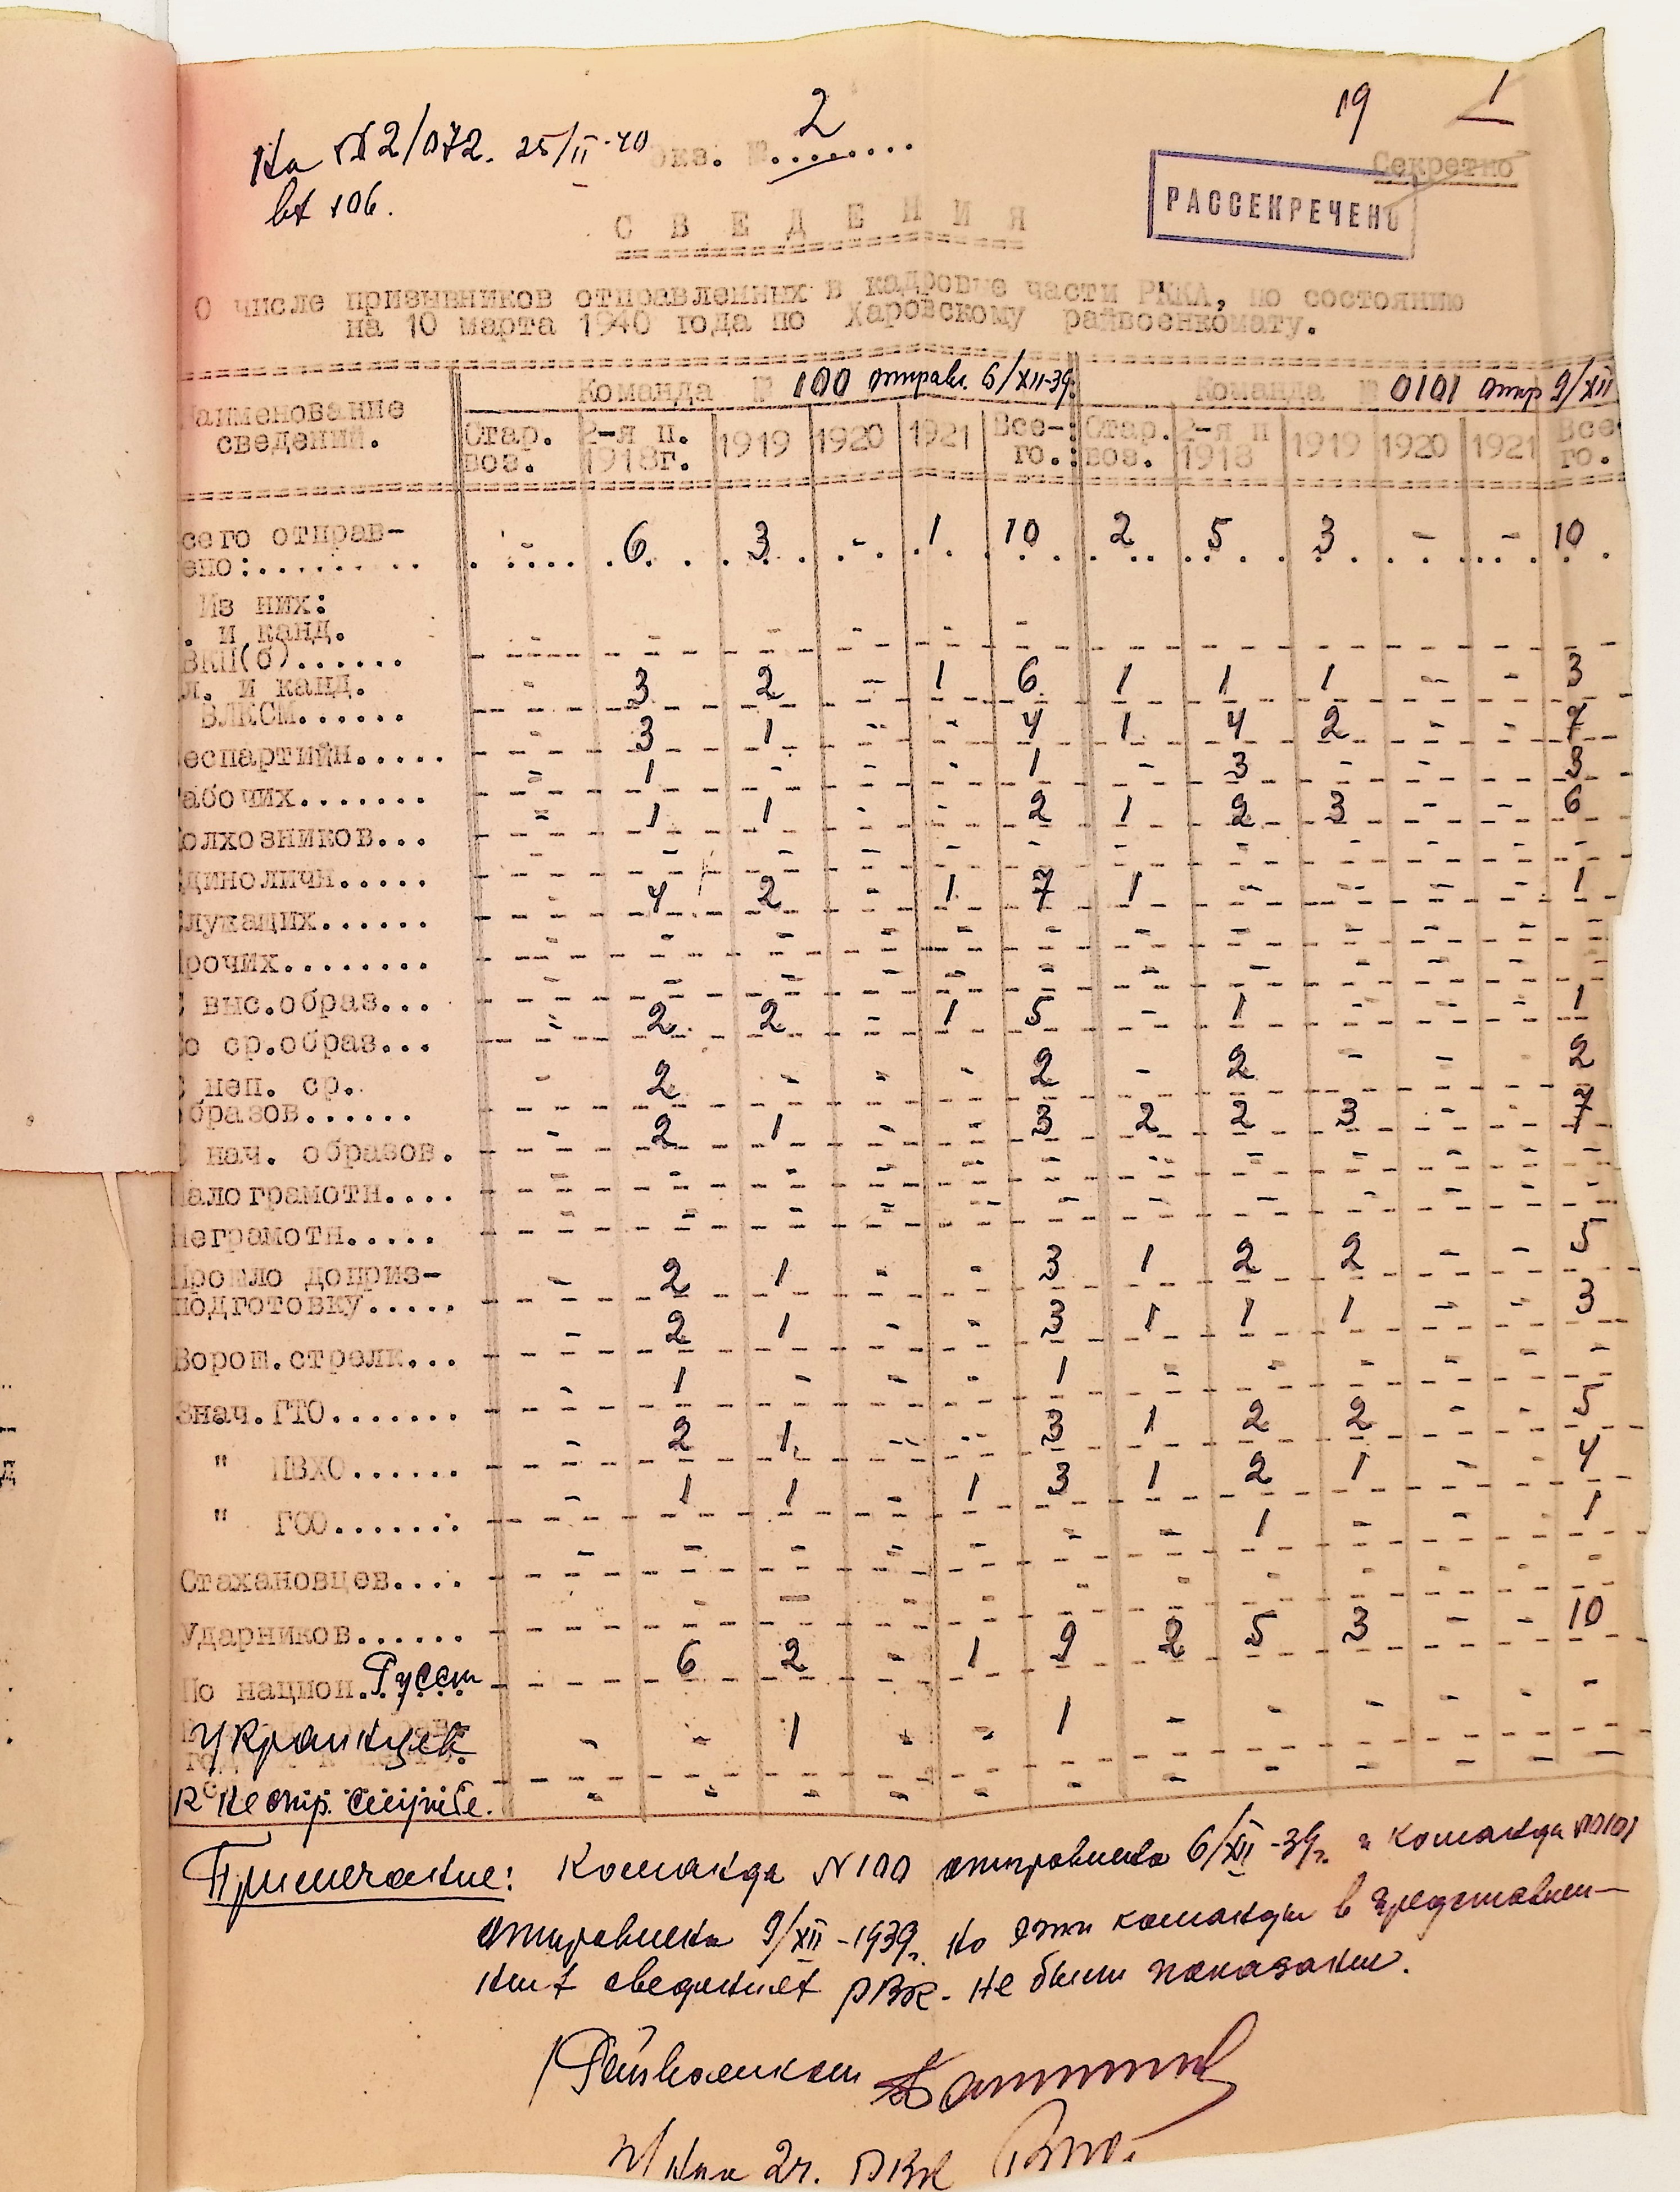 19 1
На №2/072. 25/II-40 Экз. № 2
вх 106.
Секретно
РАССЕКРЕЧЕНО
С В Е Д Е Н И Я
О числе призывников отправленных в кадровые части РККА, по состоянию
на 10 марта 1940 года по Харовскому райвоенкомату.
аименование Команда № 100 отправл. 6/XII-39. Команда № 0101 отпр 9/XII
сведений. Стар. воз. 2-я п. 1918г. 1919 1920 1921 Все-го. Стар. воз. 2-я п 1918 1919 1920 1921 Все го.
сего отправ-
ено:......... - 6 3 - 1 10 2 5 3 - - 10
Из них:
. и канд.
ВКП(б)...... - - - - - - - - - - - -
л. и канд.
ВЛКСМ...... - 3 2 - 1 6 1 1 1 - - 3
еспартийн..... - 3 1 - - 4 1 4 2 - - 7
абочих....... - 1 - - - 1 - 3 - - - 3
олхозников... - 1 1 - - 2 1 2 3 - - 6
диноличн..... - - - - - - - - - - - -
лужащих...... - 4 2 - 1 7 1 - - - - 1
рочих........ - - - - - - - - - - - -
С выс.образ... - - - - - - - - - - - -
Со ср.образ... - 2 2 - 1 5 - 1 - - - 1
С неп. ср.
образов...... - 2 - - - 2 - 2 - - - 2
С нач. образов. - 2 1 - - 3 2 2 3 - - 7
алограмотн.... - - - - - - - - - - - -
Неграмотн..... - - - - - - - - - - - -
Прошло доприз-
подготовку..... - 2 1 - - 3 1 2 2 - - 5
Ворош.стрелк... - 2 1 - - 3 1 1 1 - - 3
Знач.ГТО....... - 1 - - - 1 - - - - - -
" ПВХО...... - 2 1 - - 3 1 2 2 - - 5
" ГСО....... - 1 1 - 1 3 1 2 1 - - 4
Стахановцев.... - - - - - - - 1 - - - 1
Ударников...... - - - - - - - - - - - -
По национ. Русск - 6 2 - 1 9 2 5 3 - - 10
Украинцев - - 1 - - 1 - - - - - -
К нестр. службе. - - - - - - - - - - - -
Примечание: Команда №100 отправлена 6/XII-39г. и команда №0101
отправлена 9/XII-1939г. но эти команды в представлен-
ных сведениях РВК. не были показаны.
/Райвоенком
Нач 2ч. РВК